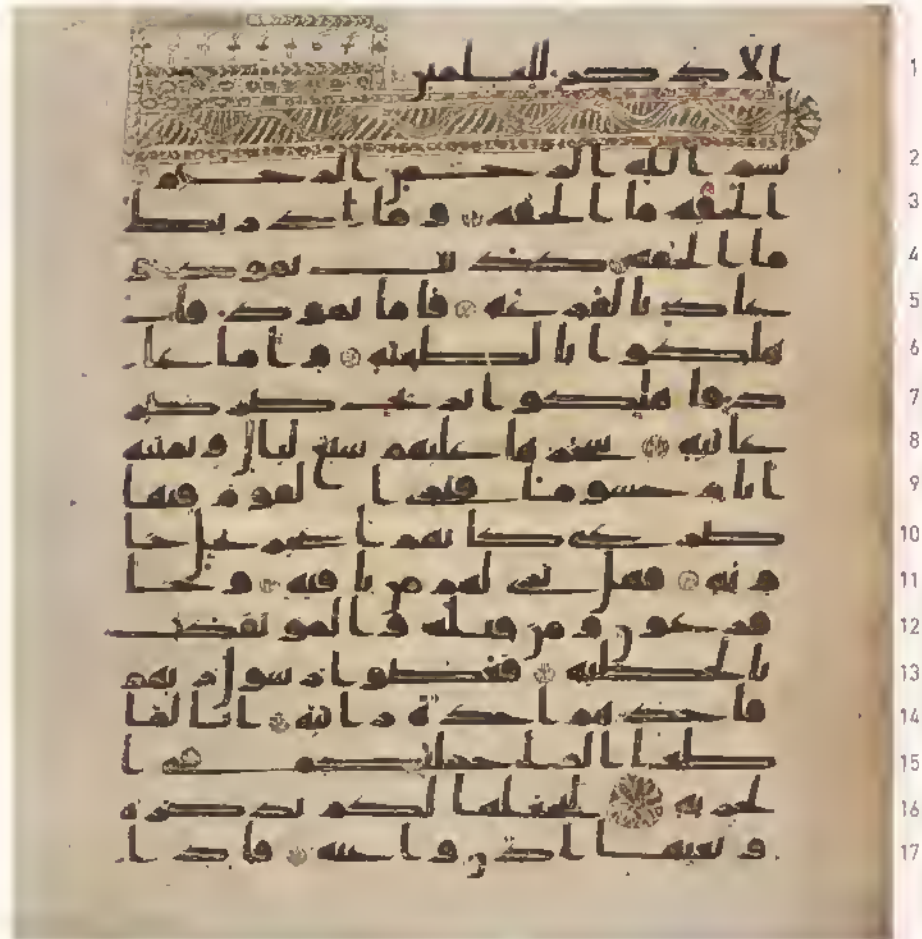 1 الا ذكر للعلمين
2 بسم الله الرحمن الرحيم
3 الحقه ما الحقه وما ادريك
4 ما الحقه كذبت ثمود و
5 عاد بالقرعه فاما ثمود فا
6 هلكوا بالطغيه واما عا
7 د فاهلكوا بريح صرصر
8 عاتيه سخرها عليهم سبع ليال وثمنيه
9 ايام حسوما فترى القوم فيها
10 صرعى كانهم اعجاز نخل خا
11 ويه فهل ترى لهم من باقيه وجا
12 فرعون ومن قبله والموتفكت
13 بالخطيه فعصوا رسول ربهم
14 فاخذهم اخذة رابيه انا لما
15 طغا الما حملنكم في ا
16 لجريه لنجعلها لكم تذكره
17 وتعيها اذن وعيه فاذا